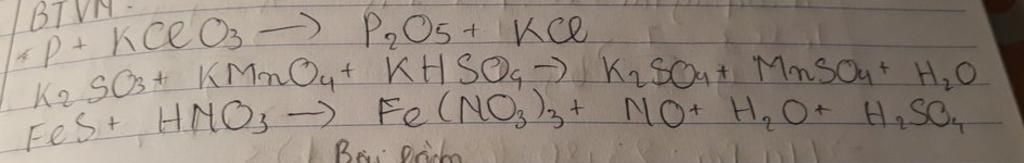 BTVN.
P + KClO3 → P2O5 + KCl
K2SO3 + KMnO4 + KHSO4 → K2SO4 + MnSO4 + H2O
FeS + HNO3 → Fe(NO3)3 + NO + H2O + H2SO4
Bài làm